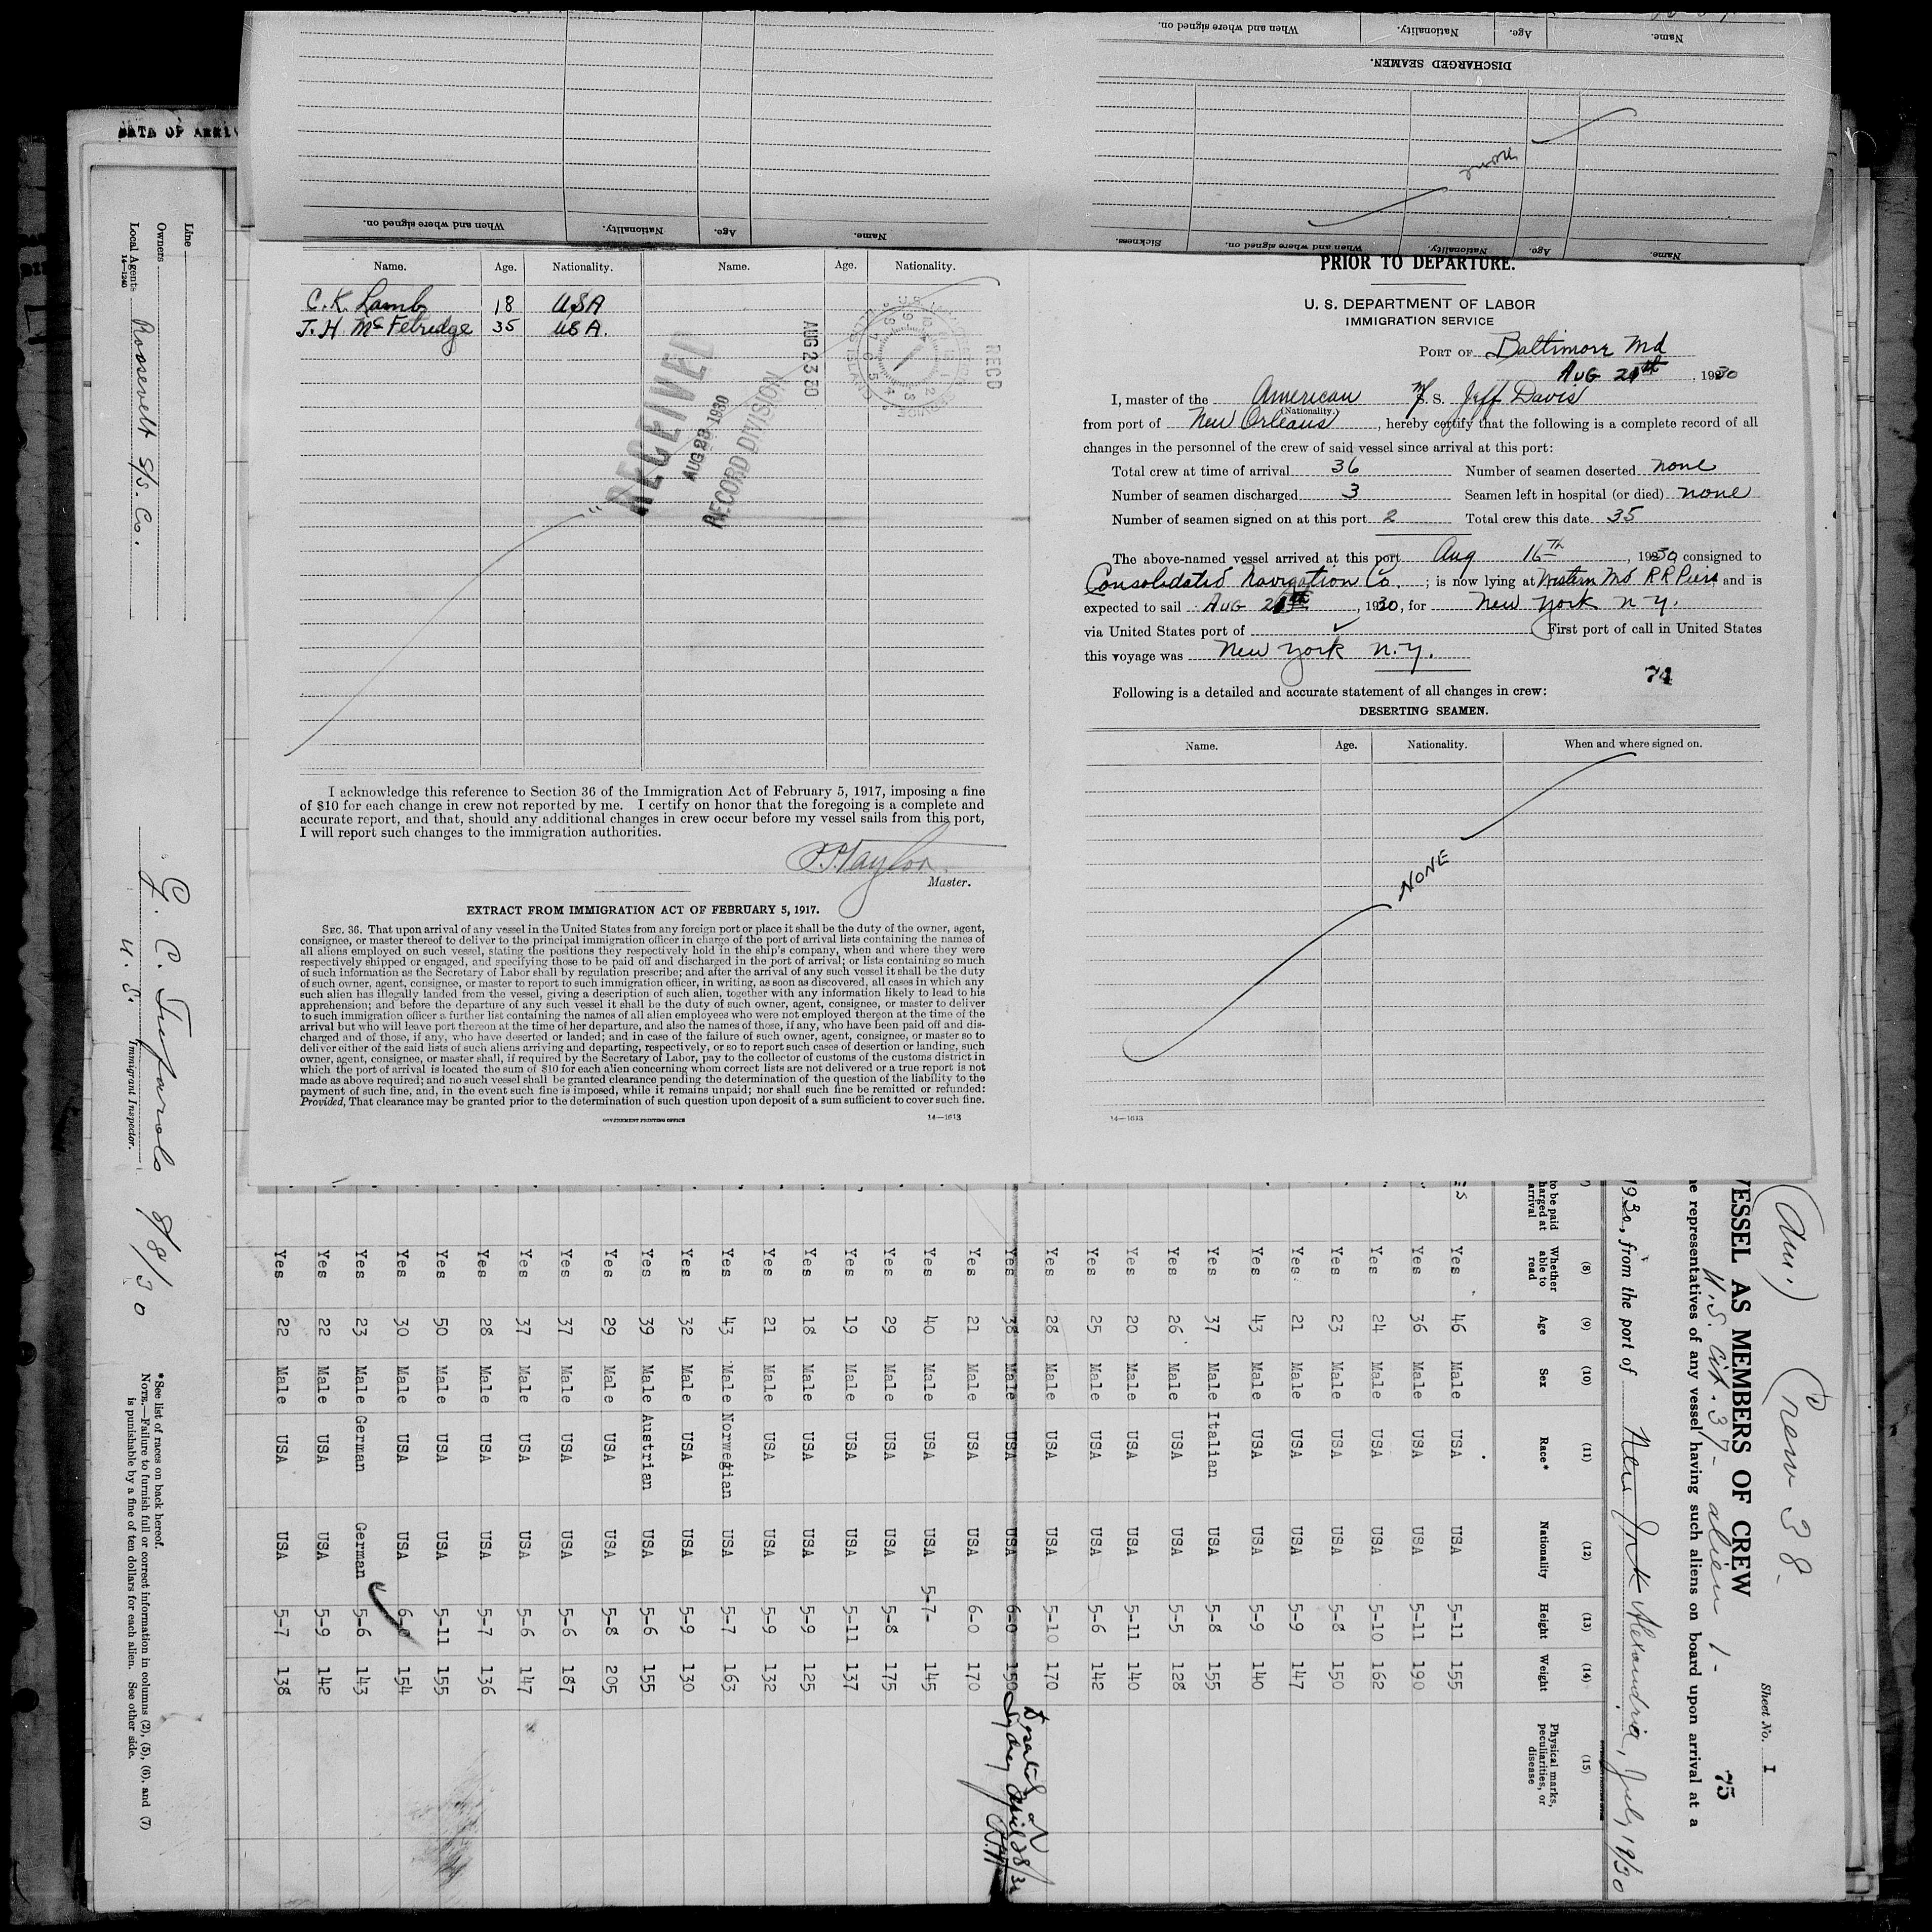 Name. Age. Nationality. When and where signed on.
DISCHARGED SEAMEN.
none
Name. Age. Nationality. When and where signed on. Sickness.
Name. Age. Nationality. When and where signed on.
Name. Age. Nationality. Name. Age. Nationality.
C. K. Lamb 18 USA
J. H McFetredge 35 USA.
RECEIVED
AUG 23 1930
RECORD DIVISION
AUG 23 30
RECD
I acknowledge this reference to Section 36 of the Immigration Act of February 5, 1917, imposing a fine
of $10 for each change in crew not reported by me. I certify on honor that the foregoing is a complete and
accurate report, and that, should any additional changes in crew occur before my vessel sails from this port,
I will report such changes to the immigration authorities.
Taylor
Master.
EXTRACT FROM IMMIGRATION ACT OF FEBRUARY 5, 1917.
SEC. 36. That upon arrival of any vessel in the United States from any foreign port or place it shall be the duty of the owner, agent,
consignee, or master thereof to deliver to the principal immigration officer in charge of the port of arrival lists containing the names of
all aliens employed on such vessel, stating the positions they respectively hold in the ship's company, when and where they were
respectively shipped or engaged, and specifying those to be paid off and discharged in the port of arrival; or lists containing so much
of such information as the Secretary of Labor shall by regulation prescribe; and after the arrival of any such vessel it shall be the duty
of such owner, agent, consignee, or master to report to such immigration officer, in writing, as soon as discovered, all cases in which any
such alien has illegally landed from the vessel, giving a description of such alien, together with any information likely to lead to his
apprehension; and before the departure of any such vessel it shall be the duty of such owner, agent, consignee, or master to deliver
to such immigration officer a further list containing the names of all alien employees who were not employed thereon at the time of the
arrival but who will leave port thereon at the time of her departure, and also the names of those, if any, who have been paid off and dis-
charged and of those, if any, who have deserted or landed; and in case of the failure of such owner, agent, consignee, or master so to
deliver either of the said lists of such aliens arriving and departing, respectively, or so to report such cases of desertion or landing, such
owner, agent, consignee, or master shall, if required by the Secretary of Labor, pay to the collector of customs of the customs district in
which the port of arrival is located the sum of $10 for each alien concerning whom correct lists are not delivered or a true report is not
made as above required; and no such vessel shall be granted clearance pending the determination of the question of the liability to the
payment of such fine, and, in the event such fine is imposed, while it remains unpaid; nor shall such fine be remitted or refunded:
Provided, That clearance may be granted prior to the determination of such question upon deposit of a sum sufficient to cover such fine.
GOVERNMENT PRINTING OFFICE 14—1613
PRIOR TO DEPARTURE.
U. S. DEPARTMENT OF LABOR
IMMIGRATION SERVICE
PORT OF Baltimore Md
AUG th, 1930
I, master of the American S. S. Jeff Davis
(Nationality)
from port of New Orleans, hereby certify that the following is a complete record of all
changes in the personnel of the crew of said vessel since arrival at this port:
Total crew at time of arrival 36 Number of seamen deserted none
Number of seamen discharged 3 Seamen left in hospital (or died) none
Number of seamen signed on at this port 2 Total crew this date 35
The above-named vessel arrived at this port Aug 16th, 1930 consigned to
Consolidated Navigation Co.; is now lying at Western Md RR Piers and is
expected to sail AUG th, 1930, for New York N Y.
via United States port of First port of call in United States
this voyage was New York N.Y.
74
Following is a detailed and accurate statement of all changes in crew:
DESERTING SEAMEN.
Name. Age. Nationality. When and where signed on.
NONE
14—1613
DATE OF ARRIV
Line
Owners
Local Agents Roosevelt S/S. Co.
14—1240
G. C. 8/8/30
U. S. Immigrant Inspector.
*See list of races on back hereof.
NOTE.—Failure to furnish full or correct information in columns (2), (5), (6), and (7)
is punishable by a fine of ten dollars for each alien. See other side.
(Am.) Crew 38-
Sheet No. I
75
VESSEL AS MEMBERS OF CREW
U.S. Cit. 37- alien 1-
e representatives of any vessel having such aliens on board upon arrival at a
1930, from the port of New York Alexandria, July 19/30
(8) (9) (10) (11) (12) (13) (14) (15)
to be paid harged at arrival Whether able to read Age Sex Race* Nationality Height Weight Physical marks, peculiarities, or disease
es Yes 46 Male USA USA 5-11 155
Yes 36 Male USA USA 5-11 190
Yes 24 Male USA USA 5-10 162
Yes 23 Male USA USA 5-8 150
Yes 21 Male USA USA 5-9 147
Yes 43 Male USA USA 5-9 140
Yes 37 Male Italian USA 5-8 155
Yes 26 Male USA USA 5-5 128
Yes 20 Male USA USA 5-11 140
Yes 25 Male USA USA 5-6 142
Yes 28 Male USA USA 5-10 170
Yes 38 Male USA USA 6-0 190 Deserted Sydney April 28/30
Yes 21 Male USA USA 6-0 170
Yes 40 Male USA USA 5-7- 145
Yes 29 Male USA USA 5-8 175
Yes 19 Male USA USA 5-11 137
Yes 18 Male USA USA 5-9 125
Yes 21 Male USA USA 5-9 132
Yes 43 Male Norwegian USA 5-7 163
Yes 32 Male USA USA 5-9 130
Yes 39 Male Austrian USA 5-6 155
Yes 29 Male USA USA 5-8 205
Yes 37 Male USA USA 5-6 187
Yes 37 Male USA USA 5-6 147
Yes 28 Male USA USA 5-7 136
Yes 50 Male USA USA 5-11 155
Yes 30 Male USA USA 6-0 154
Yes 23 Male German German 5-6 143
Yes 22 Male USA USA 5-9 142
Yes 22 Male USA USA 5-7 138